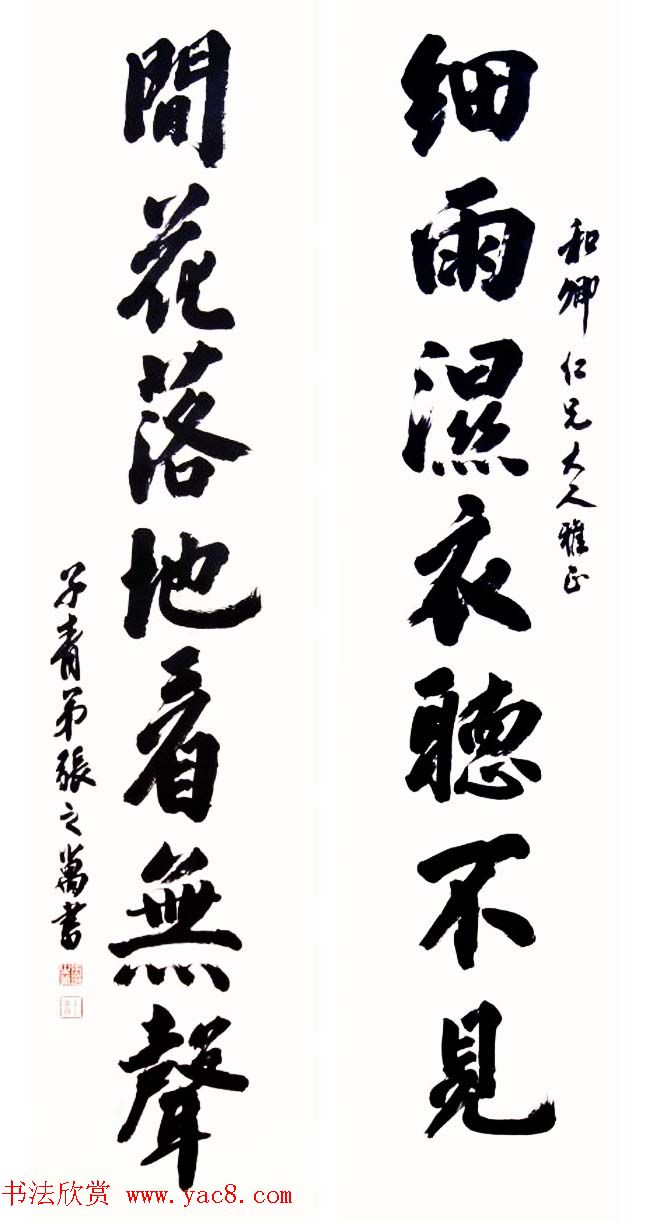 和卿仁兄大人雅正
細雨濕衣聽不見
閒花落地看無聲
子青弟張之萬書
书法欣赏 www.yac8.com